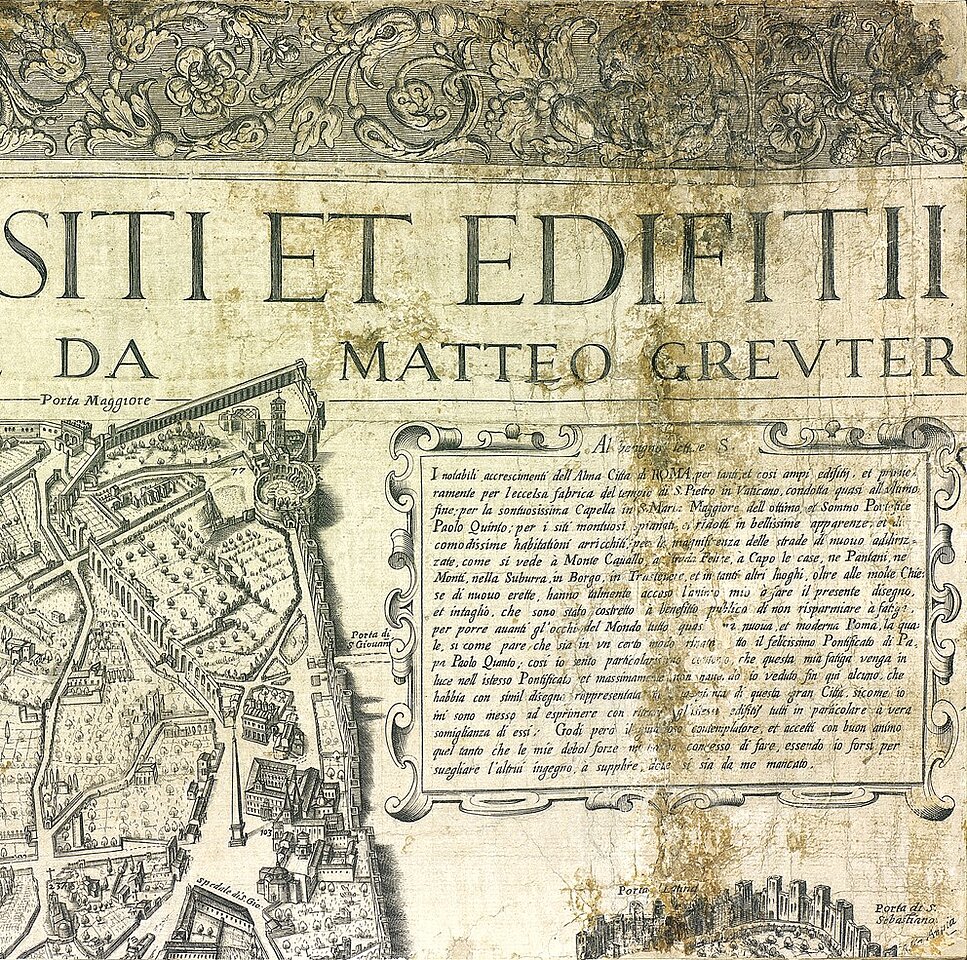 SITI ET EDIFITII
DA MATTEO GREVTER
Porta Maggiore
77
Al benigno S.
I notabili accrescimenti dell'Alma Città di ROMA, per tanti, et così ampi edifitij, et
ramente per l'eccelsa fabrica del tempio di S. Pietro in Vaticano, condotta quasi all'ultimo
fine; per la sontuosissima Capella in S. Maria Maggiore dell'ottimo, et Sommo Pontefice
Paolo Quinto; per i siti montuosi spianati, o ridotti in bellissime apparenze, et di
comodissime habitationi arricchiti; per la magnificenza delle strade di nuouo adiriz-
zate, come si vede à Monte Cauallo, a Felice, a Capo le case, ne Pantani, ne
Monti, nella Suburra, in Borgo, in Trasteuere, et in tanti altri luoghi, oltre alle molte Chie-
se di nuouo erette, hanno talmente acceso l'animo mio à fare il presente disegno,
et intaglio, che sono stato costretto à benefitio publico di non risparmiare à fatiga,
per porre auanti gl'occhi del Mondo tutto quasi nuoua, et moderna Roma, la qua-
le, si come pare, che sia in vn certo modo rinata tto il felicissimo Pontificato di Pa-
pa Paolo Quinto, così io sento particolarissimo contento, che questa mia fatiga venga in
luce nell'istesso Pontificato, et massimamente non hauendo io veduto fin quì alcuno, che
habbia con simil disegno rappresentata di questa gran Città, sicome io
mi sono messo ad esprimere con gl'istessi edifitij tutti in particolare à vera
somiglianza di essi. Godi però il contemplatore, et accetti con buon animo
quel tanto che le mie debol forze concesso di fare, essendo io forsi per
suegliare l'altrui ingegno, à supplire, doue si sia da me mancato.
Porta di
S Giouani
103
Spedale di S. Gio.
Porta Latina
Porta di S.
Sebastiano
Via Appia